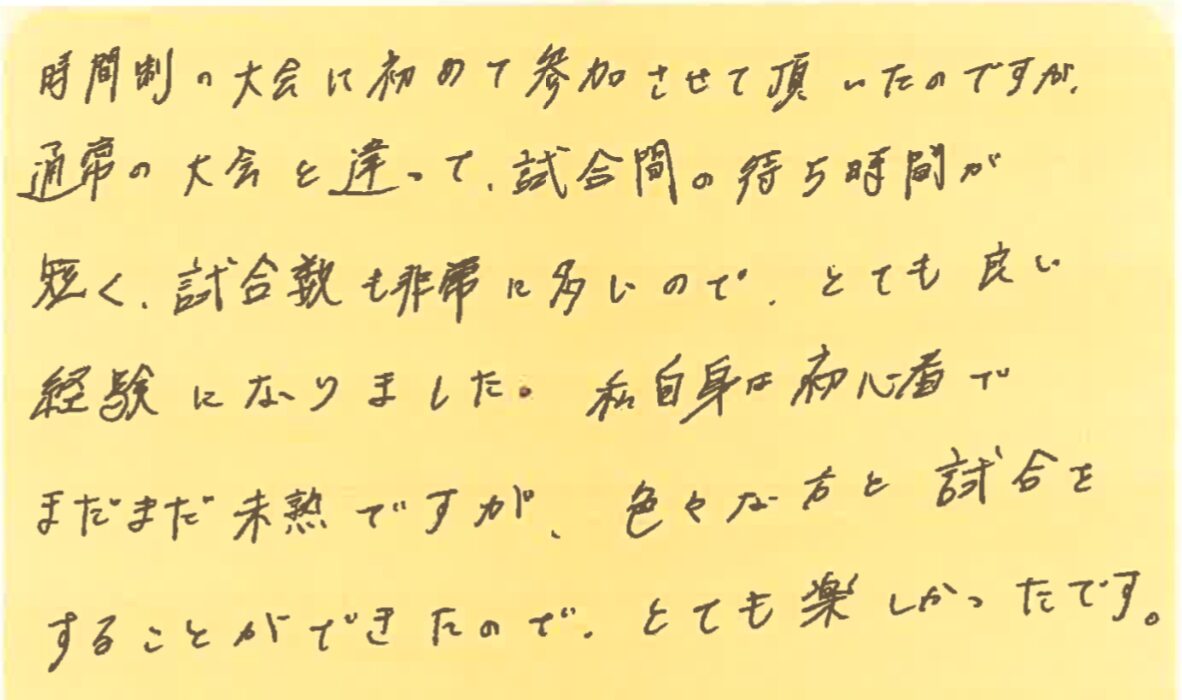 時間制の大会に初めて参加させて頂いたのですが、
通常の大会と違って、試合間の待ち時間が
短く、試合数も非常に多いので、とても良い
経験になりました。私自身は初心者で
まだまだ未熟ですが、色々な方と試合を
することができたので、とても楽しかったです。